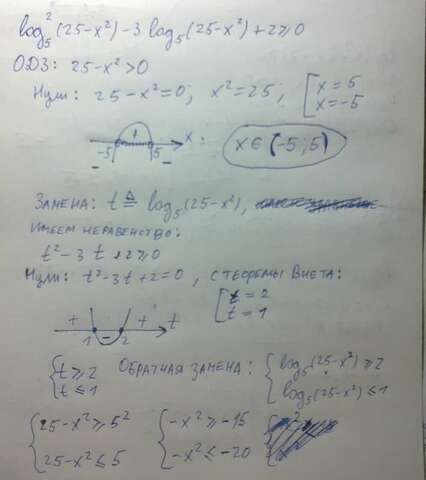 log₅²(25-x²)-3 log₅(25-x²)+2≥0
ОДЗ: 25-x²>0
Нули: 25-x²=0; x²=25; [x=5 x=-5
-5 5 x: x∈(-5;5)
ЗАМЕНА: t ≜ log₅(25-x²),
ИМЕЕМ НЕРАВЕНСТВО:
t²-3t+2≥0
Нули: t²-3t+2=0, С ТЕОРЕМЫ ВИЕТА: [t=2 t=1
+ 1 - 2 + t
{t≥2 t≤1 ОБРАТНАЯ ЗАМЕНА: {log₅(25-x²)≥2 log₅(25-x²)≤1
{25-x²≥5² {-x²≥-15
25-x²≤5 -x²≤-20